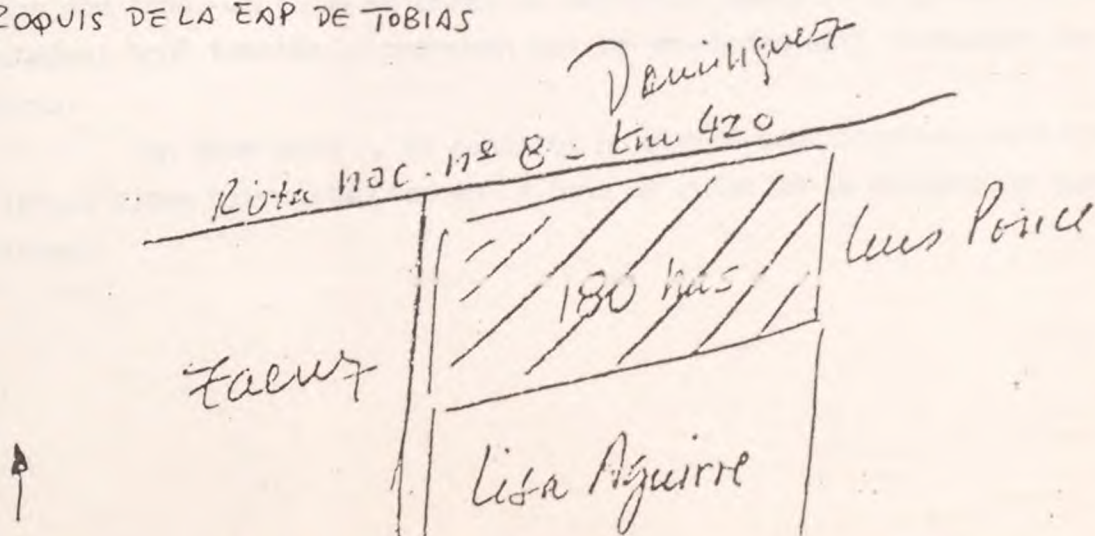 ROQUIS DE LA EAP DE TOBIAS
Dominguez
Ruta nac. nº 8 - Km 420
Luis Ponce
180 has
Lisa Aguirre